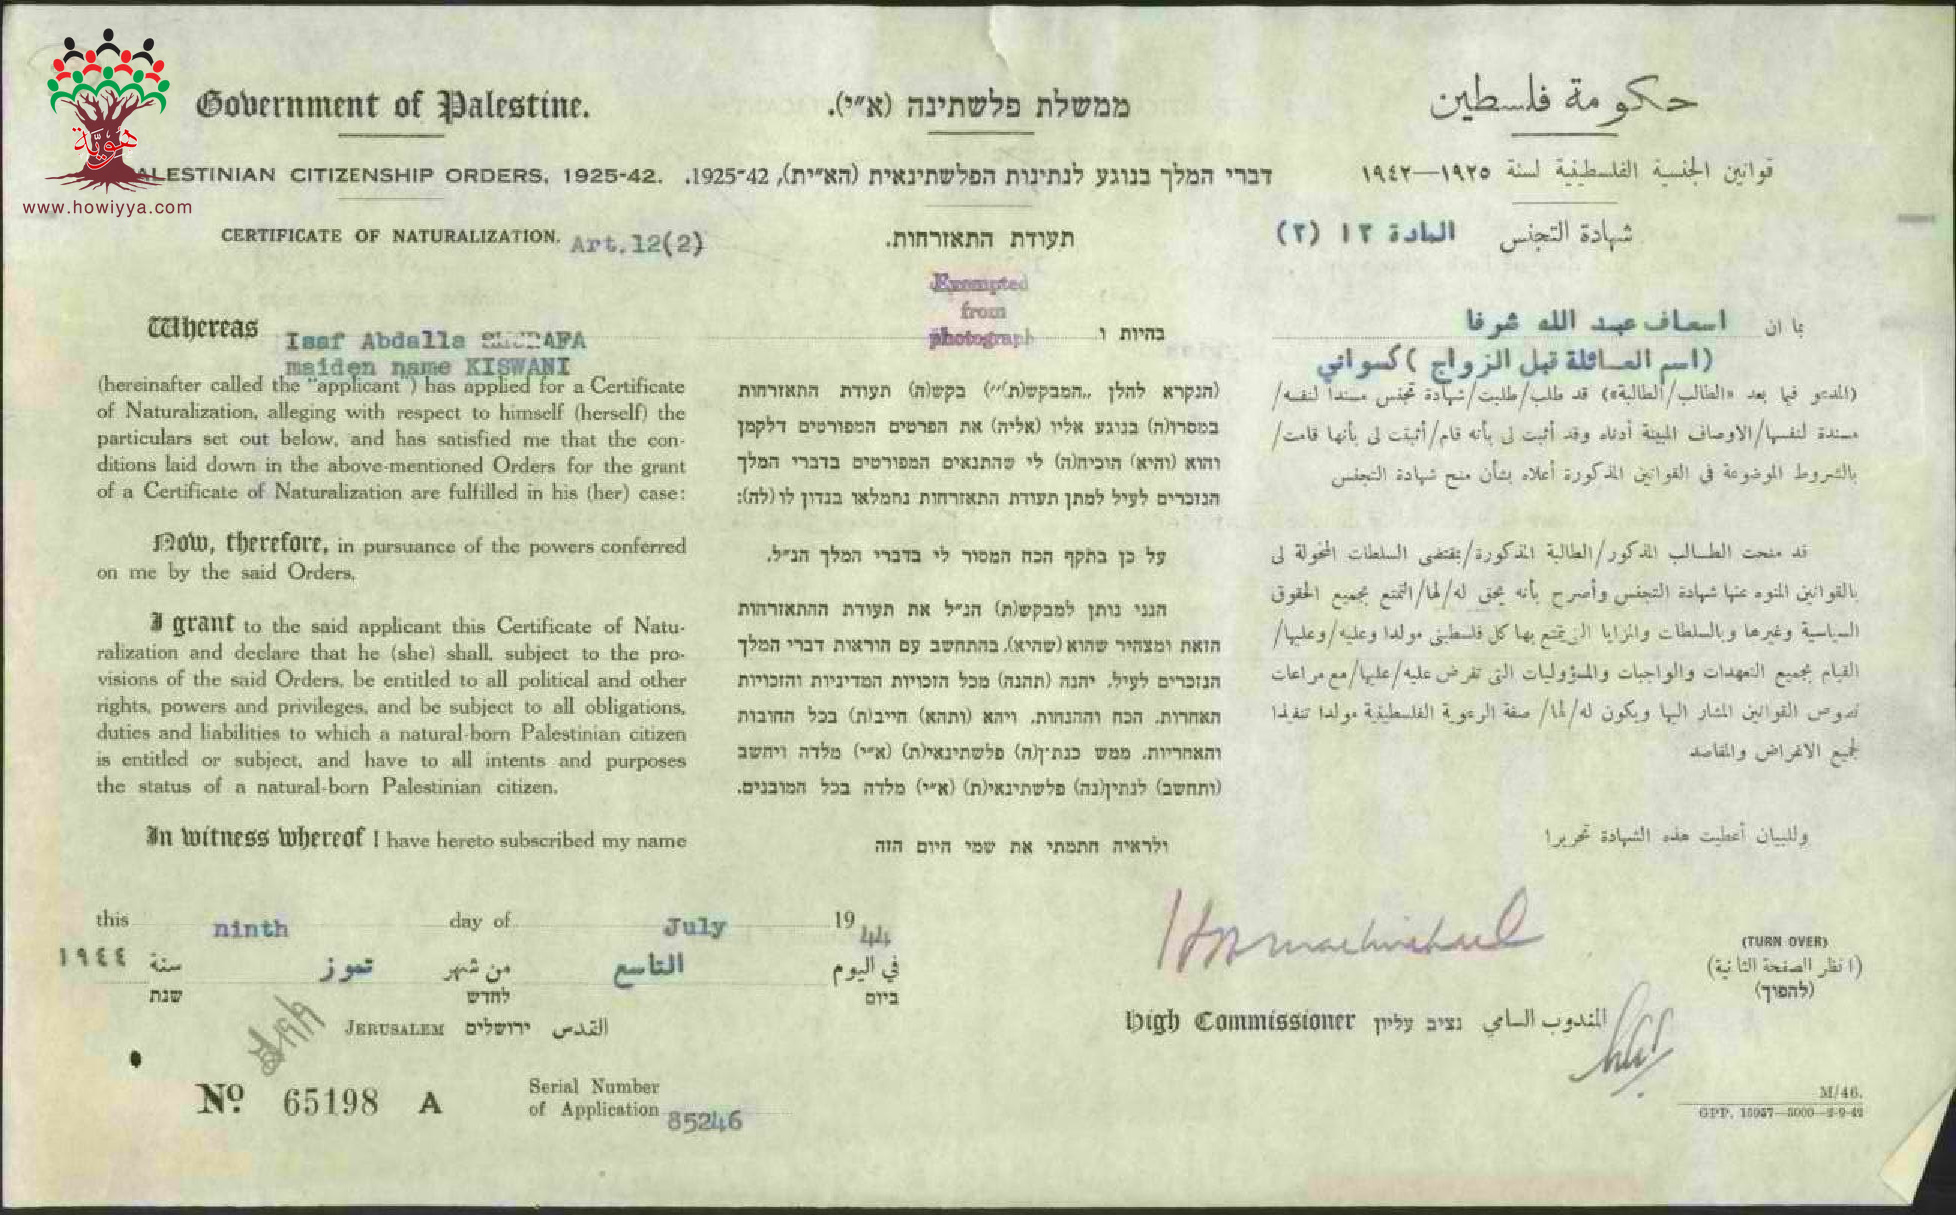 هويّة
www.howiyya.com
Government of Palestine.
PALESTINIAN CITIZENSHIP ORDERS, 1925-42.
CERTIFICATE OF NATURALIZATION. Art.12(2)
Whereas Isaf Abdalla SHURAFA
maiden name KISWANI
(hereinafter called the "applicant") has applied for a Certificate
of Naturalization, alleging with respect to himself (herself) the
particulars set out below, and has satisfied me that the con-
ditions laid down in the above-mentioned Orders for the grant
of a Certificate of Naturalization are fulfilled in his (her) case:
Now, therefore, in pursuance of the powers conferred
on me by the said Orders,
I grant to the said applicant this Certificate of Natu-
ralization and declare that he (she) shall, subject to the pro-
visions of the said Orders, be entitled to all political and other
rights, powers and privileges, and be subject to all obligations,
duties and liabilities to which a natural-born Palestinian citizen
is entitled or subject, and have to all intents and purposes
the status of a natural-born Palestinian citizen.
In witness whereof I have hereto subscribed my name
ממשלת פלשתינה (א״י).
דברי המלך בנוגע לנתינות הפלשתינאית (הא״ית), 1925-42.
תעודת התאזרחות.
Exempted
from
photograph
בהיות ו
(הנקרא להלן „המבקש(ת)״) בקש(ה) תעודת התאזרחות
במסרו(ה) בנוגע אליו (אליה) את הפרטים המפורטים דלקמן
והוא (והיא) הוכיח(ה) לי שהתנאים המפורטים בדברי המלך
הנזכרים לעיל למתן תעודת התאזרחות נתמלאו בנדון לו (לה):
על כן בתקף הכח המסור לי בדברי המלך הנ״ל.
הנני נותן למבקש(ת) הנ״ל את תעודת ההתאזרחות
הזאת ומצהיר שהוא (שהיא), בהתחשב עם הוראות דברי המלך
הנזכרים לעיל, יהנה (תהנה) מכל הזכויות המדיניות והזכויות
האחרות, הכח וההנחות, ויהא (ותהא) חייב(ת) בכל החובות
והאחריות, ממש כנתין(ה) פלשתינאי(ת) (א״י) מלדה ויחשב
(ותחשב) לנתין(נה) פלשתינאי(ת) (א״י) מלדה בכל המובנים.
ולראיה חתמתי את שמי היום הזה
حكومة فلسطين
قوانين الجنسية الفلسطينية لسنة ١٩٢٥—١٩٤٢
شهادة التجنس المادة ١٢ (٢)
بما ان اسعاف عبد الله شرفا
(اسم العائلة قبل الزواج) كسواني
(المدعو فيما بعد «الطالب/الطالبة») قد طلب/طلبت/شهادة تجنس مسندا لنفسه/
مسندة لنفسها/الاوصاف المبينة أدناه وقد أثبت لي بأنه قام/أثبتت لي بأنها قامت/
بالشروط الموضوعة في القوانين المذكورة أعلاه بشأن منح شهادة التجنس
قد منحت الطالب المذكور/الطالبة المذكورة/بمقتضى السلطات المخولة لي
بالقوانين المنوه عنها شهادة التجنس وأصرح بأنه يحق له/لها/التمتع بجميع الحقوق
السياسية وغيرها وبالسلطات والمزايا التي يتمتع بها كل فلسطيني مولدا وعليه/وعليها/
القيام بجميع التعهدات والواجبات والمسؤوليات التي تفرض عليه/عليها/مع مراعات
نصوص القوانين المشار اليها ويكون له/لها/ صفة الرعوية الفلسطينية مولدا تنفيذا
لجميع الاغراض والمقاصد
وللبيان أعطيت هذه الشهادة تحريرا
this ninth day of July 1944
في اليوم التاسع من شهر تموز سنة ١٩٤٤
ביום לחדש שנת
JERUSALEM ירושלים القدس
High Commissioner נציב עליון المندوب السامي
(TURN OVER)
(انظر الصفحة الثانية)
(להפוך)
No. 65198 A
Serial Number
of Application 85246
M/46.